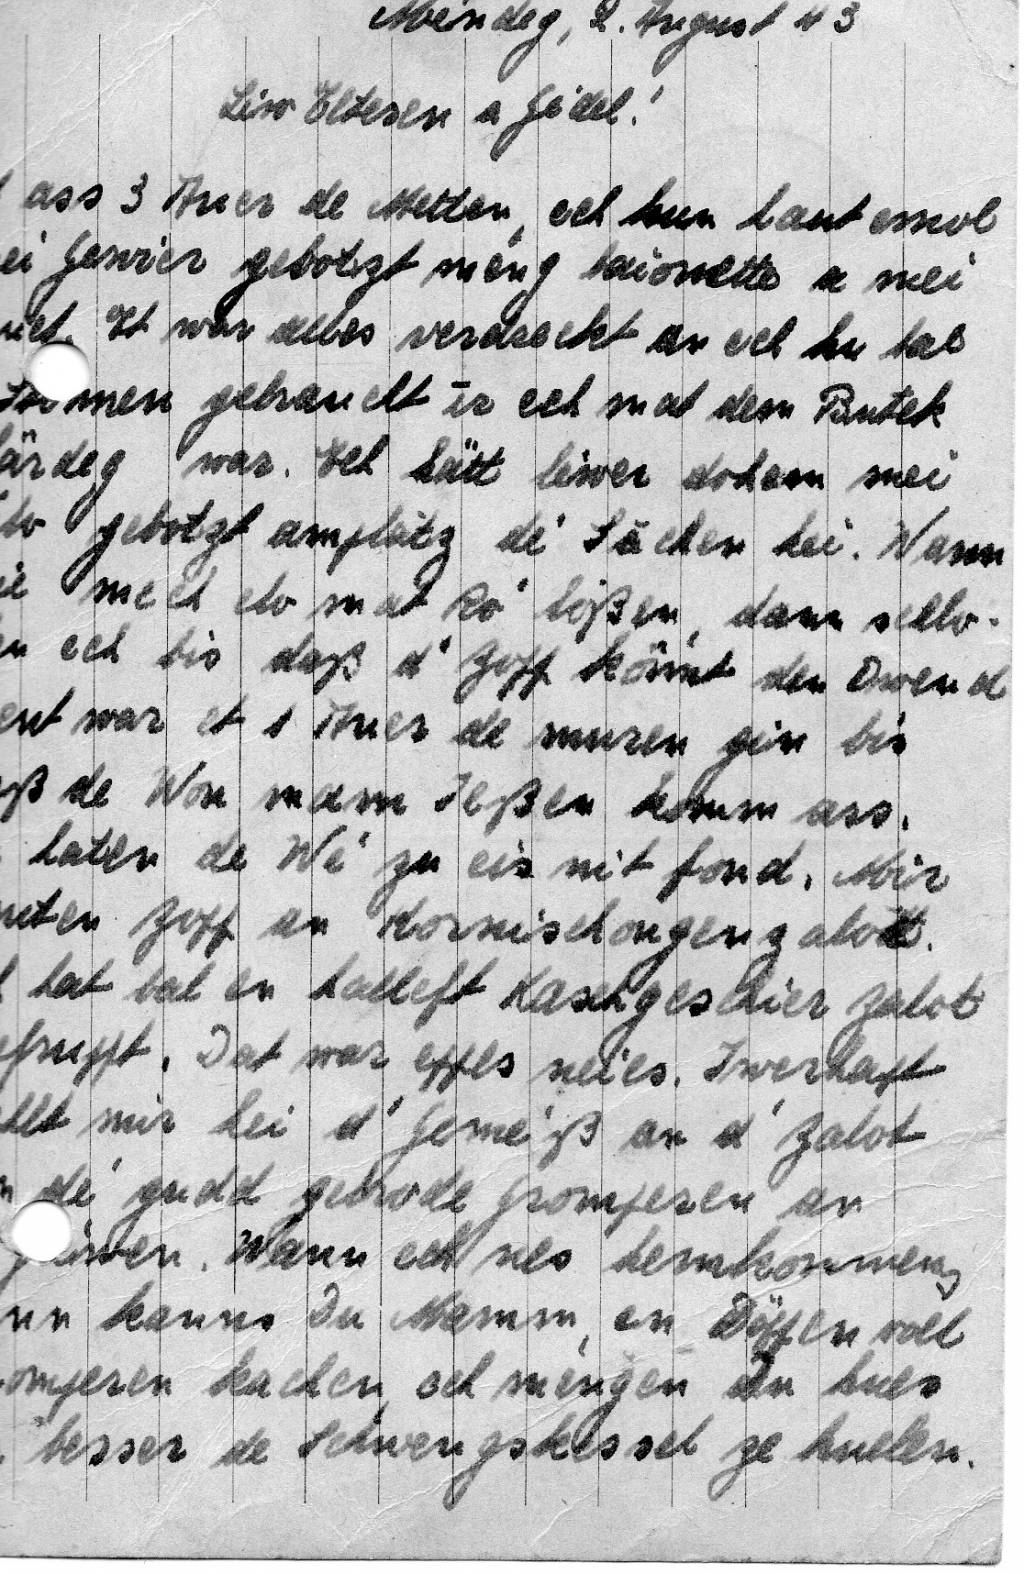 Méindeg, 2. August 43
Léiw Elteren a Gidel!
ass 3 Auer de Metten, ech hun haut emol
Gewier gebotzt méng baionette a mei
Et war alles verdreckt an ech hu bal
gebraucht ir ech mat dem Butek
färdeg war. Ech hätt léiwer dohem mei
gebotzt amplatz dé Sächen hei. Wann
mech elo mat Ro' loßen, dann schlo-
ech bis daß d' Zopp könnt den Owend
war et 1 Auer de muren gin bis
de Won mam Ießen komm ass.
haten de Wé zu eis nit fond. Mir
Zopp an Kornischongenzalot.
hat bal en halleft Kaschgeschier Zalot
Dat war eppes neies. Iwerhapt
mir hei d' Geméiß an d' Zalot
dé gudd gebrode Gromperen an
Wann ech nes hemkommen,
kanns Du Mamm, en Döppen voll
kachen, ech méngen Du hues
besser de Schwengskessel ze huelen.